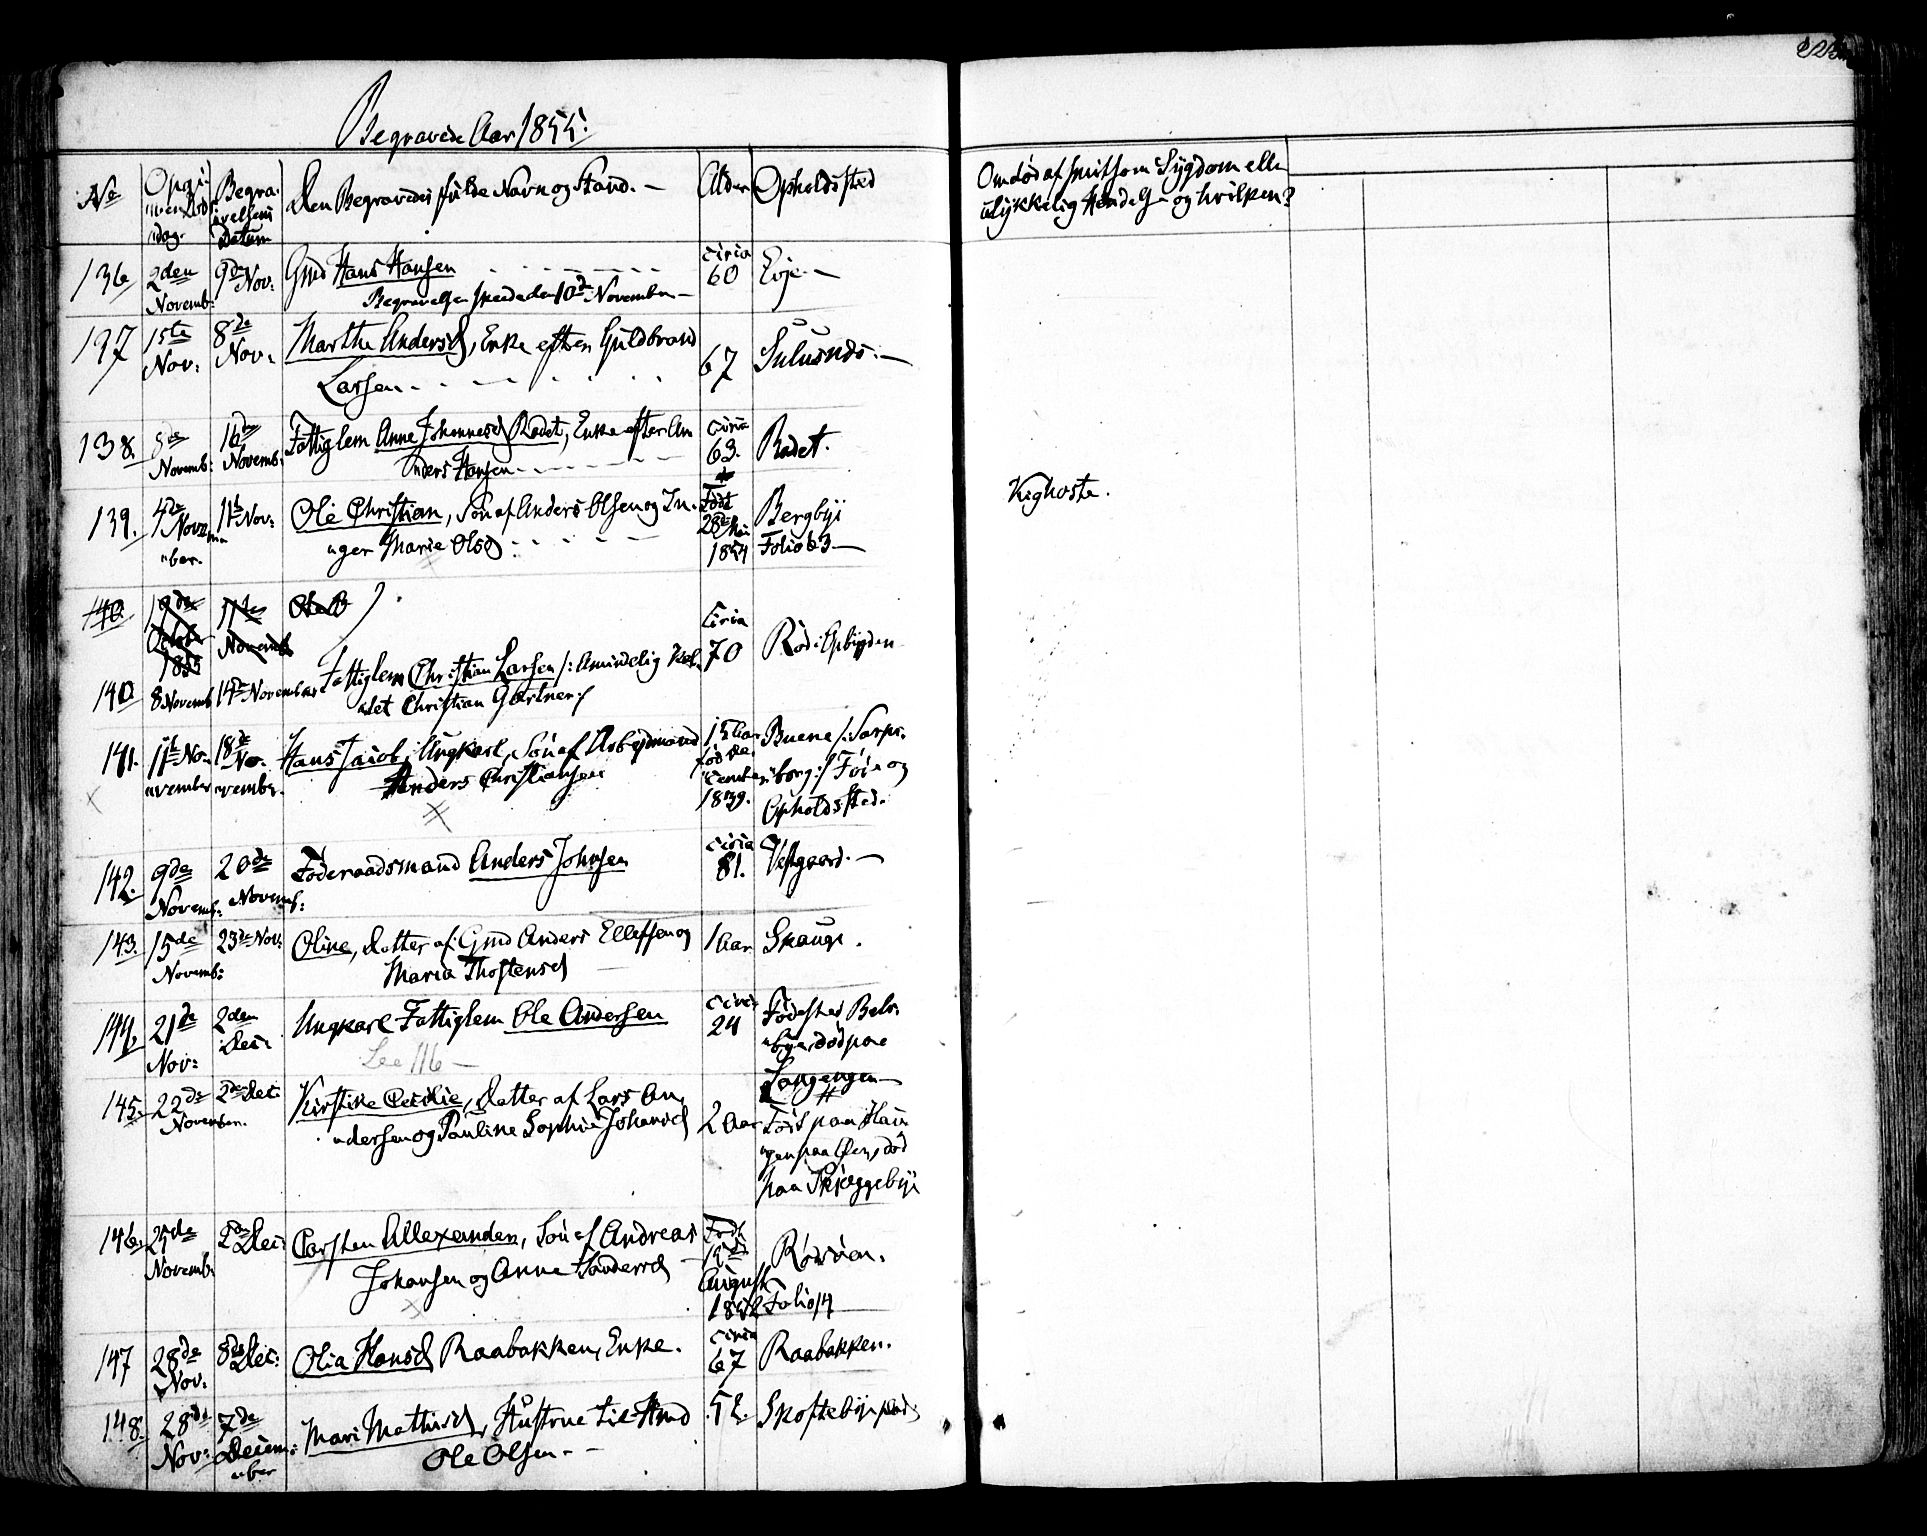 Begravede Aar 1855.
No
Opgivven Dødsdag.
Begravelsens Datum
Den Begravedes fulde Navn og Stand. —
Alder
Opholdssted
Om død af smitsom Sygdom eller
ulykkelig Hændelse og hvilken?
136 2den Novemb: 9de Nov: Gmd Hans Hansen circa 60 Evje. —
Begravelsen skeede den 10de November —
137 1ste Nov: 8de Nov: Marthe Andersd, Enke efter Guldbrand
Larsen 67
138. Novemb: 16de Novemb: Fattiglem Anne Johannesd Rødet, Enke efter An
nders Hansen circa 63. Rødet.
139. 4de November. 11te Nov: Ole Christian, Søn af Anders Olsen og In-
ger Marie Olsd Født 28de Mai 1854 Bergbye
Folio 63 —
Kighoste.
140 19de October 1855 11te Novemb
140 8 Novemb 14de November Fattiglem Christian Larsen /: Almindelig kal-
det Christian Gartner :/ Circa 70 Röd i Opbygden
141. 11te November 18de November. Hans Jacob, Ungkarl, Søn af Arbeidsmand
Anders Christiansen 15 Aar fød December 1839. Buene /: Sarps-
borg :/ Føde og
Opholdssted.
142. 9de Novemb: 20de Novemb: Föderaadsmand Anders Johnsen circa 81. Vestgaard. —
143. 15de Novemb: 23de Nov: Oline, Datter af Gmd Anders Ellefsen og
Maria Thostensd 1 Aar Skauge.
144. 21de Nov: 2den Dec: Ungkarl Fattiglem Ole Andersen circa 24 Födested
bye, død paa
Langengen —
See 116 —
145. 22de November. 2de Dec: Kirstine Cecilie, Datter af Lars An-
dersen og Pauline Sophie Johansd 2 Aar Født paa Hau
gen paa Øen, død
paa Skjeggebye
146. Novemb: Dec: Carsten Allexander, Søn af Andreas
Johansen og Anne Handersd Født August 1852 Rörsöen.
Folio 14
147 28de Nov. 8de Dec: Olia Hansd Raabakken, Enke. circa 67 Raabakken.
148. 28de Nov: 7de December Mari Mathisd, Hustrue til Gmd
Ole Olsen — 52. Skoftebye